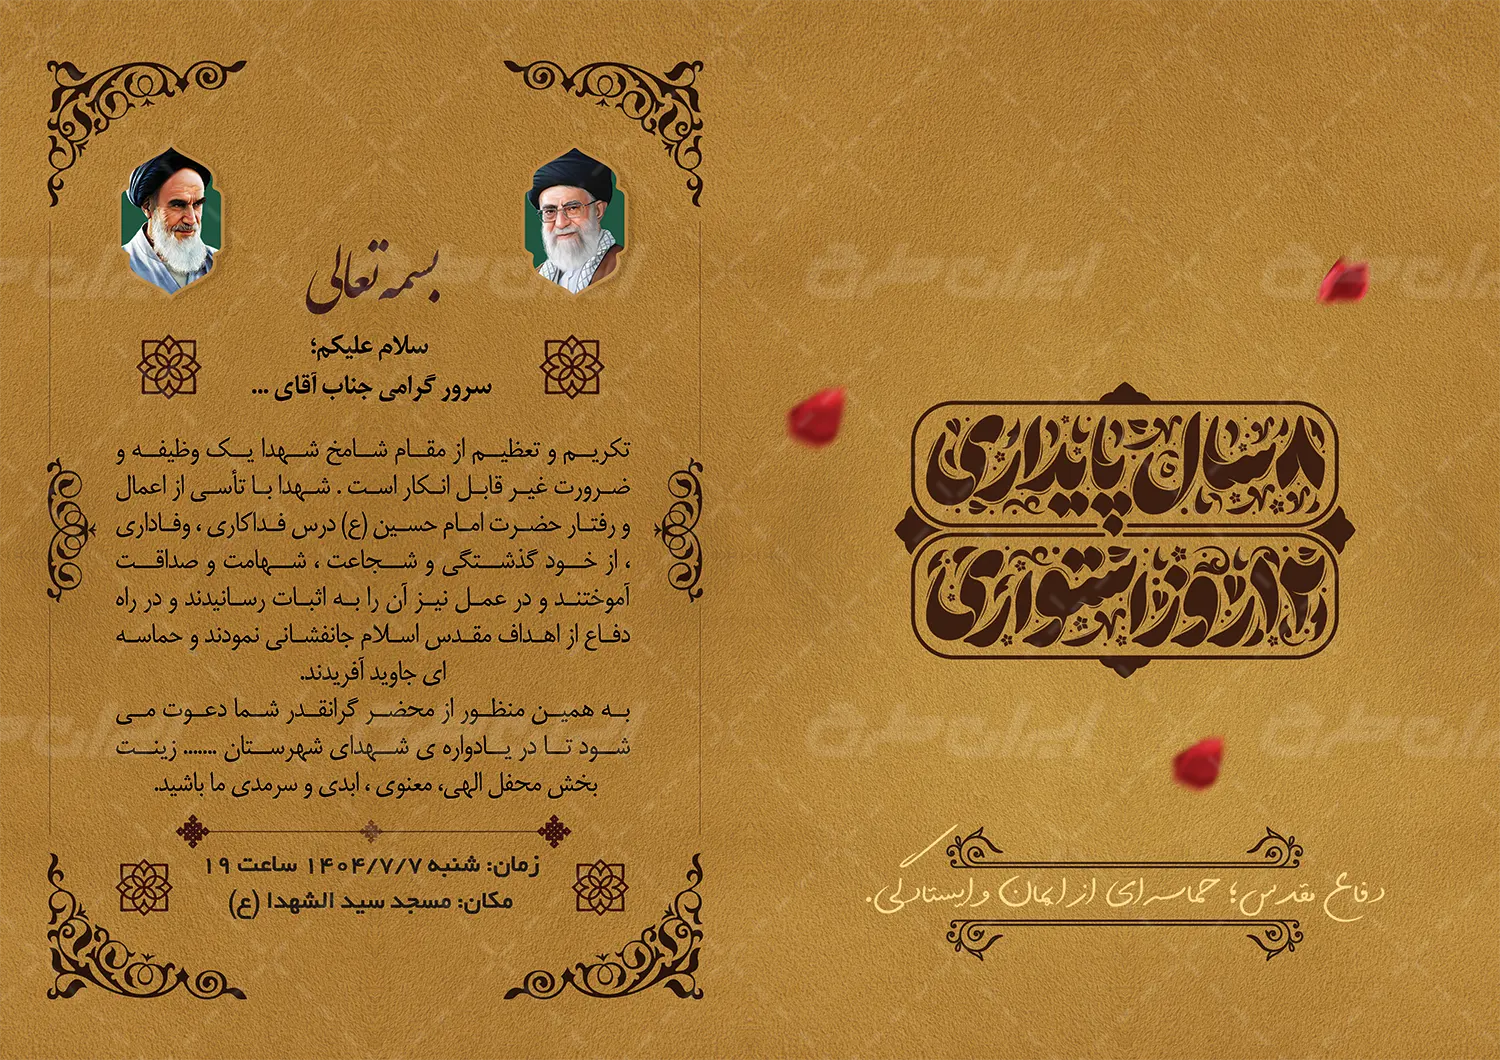 ۸ سال پایداری
۱۲ روز استواری
دفاع مقدس؛ حماسه‌ای از ایمان و ایستادگی.
بسمه تعالی
سلام علیکم؛
سرور گرامی جناب آقای ...
تکریم و تعظیم از مقام شامخ شهدا یک وظیفه و
ضرورت غیر قابل انکار است . شهدا با تأسی از اعمال
و رفتار حضرت امام حسین (ع) درس فداکاری ، وفاداری
، از خود گذشتگی و شجاعت ، شهامت و صداقت
آموختند و در عمل نیز آن را به اثبات رسانیدند و در راه
دفاع از اهداف مقدس اسلام جانفشانی نمودند و حماسه
ای جاوید آفریدند.
به همین منظور از محضر گرانقدر شما دعوت می
شود تا در یادواره ی شهدای شهرستان ....... زینت
بخش محفل الهی، معنوی ، ابدی و سرمدی ما باشید.
زمان: شنبه ۱۴۰۴/۷/۷ ساعت ۱۹
مکان: مسجد سید الشهدا (ع)
ایران طرح